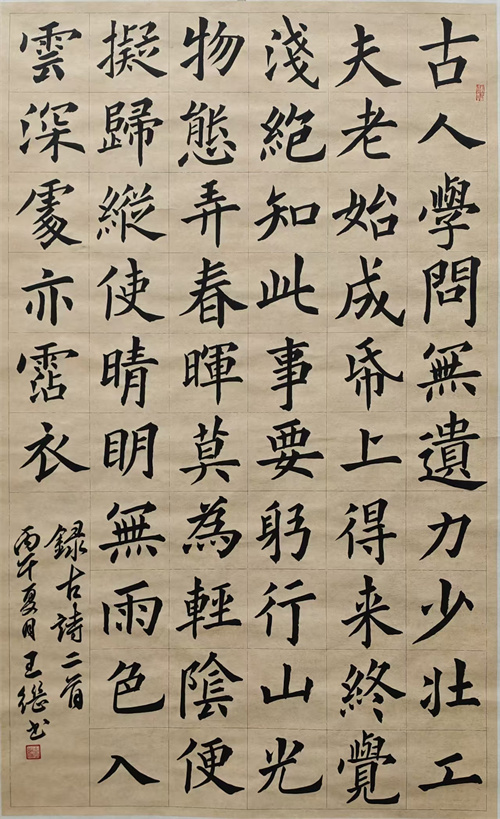 古人學問無遺力少壯工
夫老始成帋上得来終覺
淺絶知此事要躬行山光
物態弄春暉莫為輕陰便
擬歸縱使晴眀無雨色入
雲深處亦霑衣
録古詩二首
丙午夏月王继书